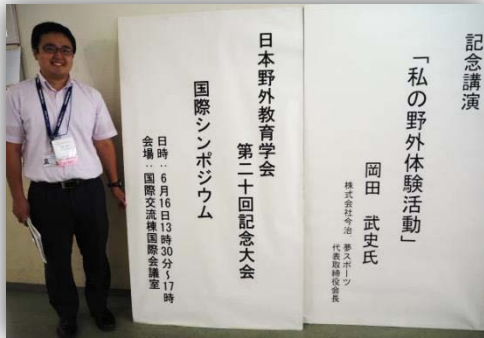 記念講演
「私の野外体験活動」
岡田 武史氏
株式会社今治 夢スポーツ
代表取締役会長
日本野外教育学会
第二十回記念大会
国際シンポジウム
日時:6月16日13時30分~17時
会場:国際交流棟国際会議室